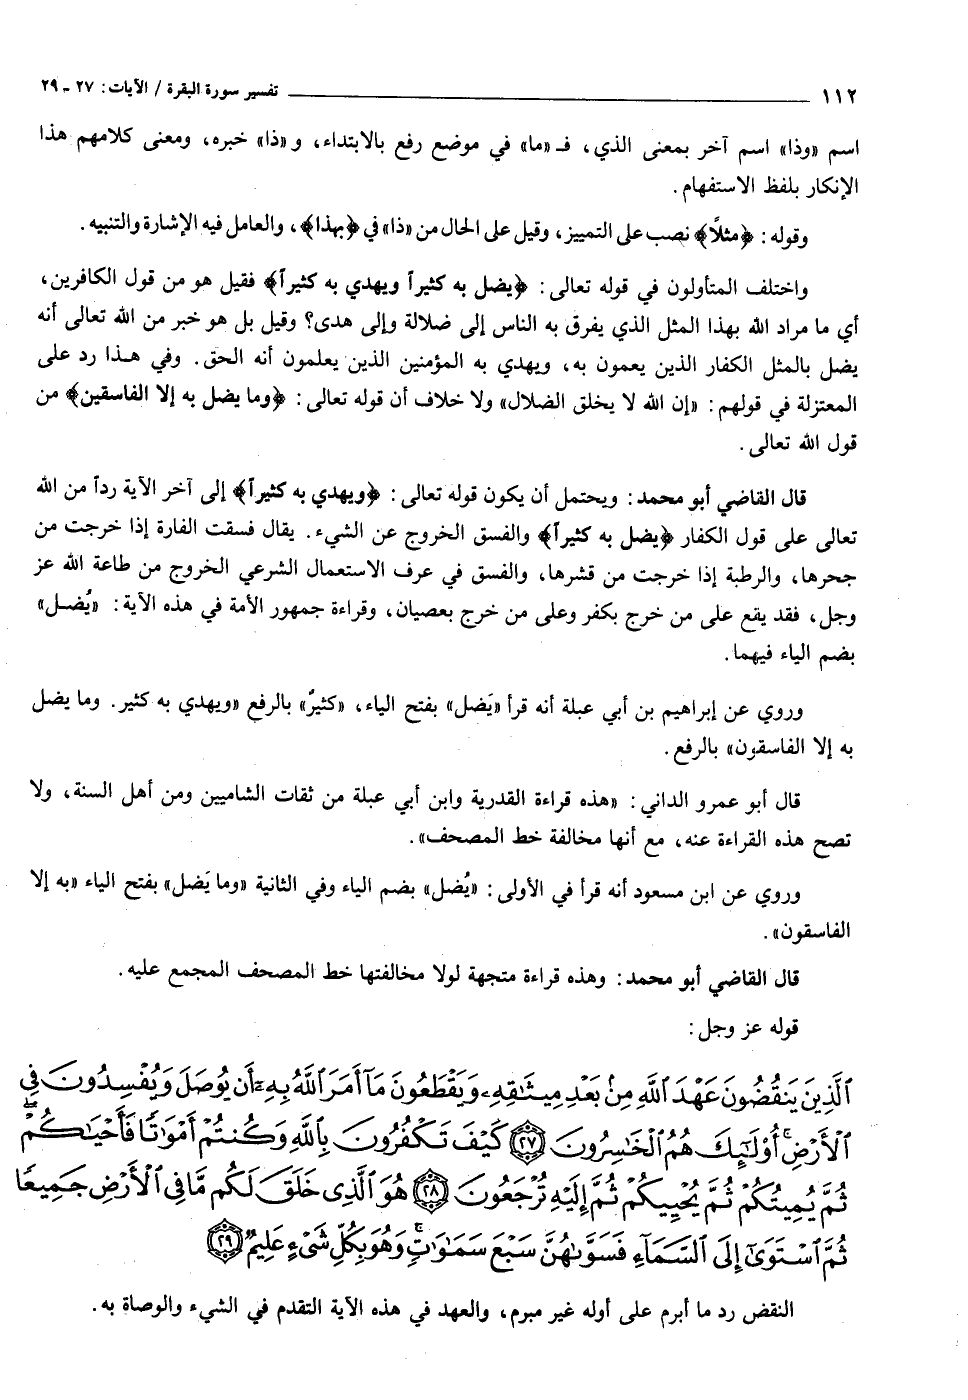 ١١٢ تفسير سورة البقرة / الآيات: ٢٧ - ٢٩
اسم «وذا» اسم آخر بمعنى الذي، فـ «ما» في موضع رفع بالابتداء، و «ذا» خبره، ومعنى كلامهم هذا
الإنكار بلفظ الاستفهام.
وقوله: ﴿مثلاً﴾ نصب على التمييز، وقيل على الحال من «ذا» في ﴿بهذا﴾، والعامل فيه الإشارة والتنبيه.
واختلف المتأولون في قوله تعالى: ﴿يضل به كثيراً ويهدي به كثيراً﴾ فقيل هو من قول الكافرين،
أي ما مراد الله بهذا المثل الذي يفرق به الناس إلى ضلالة وإلى هدى؟ وقيل بل هو خبر من الله تعالى أنه
يضل بالمثل الكفار الذين يعمون به، ويهدي به المؤمنين الذين يعلمون أنه الحق. وفي هذا رد على
المعتزلة في قولهم: «إن الله لا يخلق الضلال» ولا خلاف أن قوله تعالى: ﴿وما يضل به إلا الفاسقين﴾ من
قول الله تعالى.
قال القاضي أبو محمد: ويحتمل أن يكون قوله تعالى: ﴿ويهدي به كثيراً﴾ إلى آخر الآية رداً من الله
تعالى على قول الكفار ﴿يضل به كثيراً﴾ والفسق الخروج عن الشيء. يقال فسقت الفارة إذا خرجت من
جحرها، والرطبة إذا خرجت من قشرها، والفسق في عرف الاستعمال الشرعي الخروج من طاعة الله عز
وجل، فقد يقع على من خرج بكفر وعلى من خرج بعصيان، وقراءة جمهور الأمة في هذه الآية: «يُضل»
بضم الياء فيهما.
وروي عن إبراهيم بن أبي عبلة أنه قرأ «يَضل» بفتح الياء، «كثيرٌ» بالرفع «ويهدي به كثير. وما يضل
به إلا الفاسقون» بالرفع.
قال أبو عمرو الداني: «هذه قراءة القدرية وابن أبي عبلة من ثقات الشاميين ومن أهل السنة، ولا
تصح هذه القراءة عنه، مع أنها مخالفة خط المصحف».
وروي عن ابن مسعود أنه قرأ في الأولى: «يُضل» بضم الياء وفي الثانية «وما يَضل» بفتح الياء «به إلا
الفاسقون».
قال القاضي أبو محمد: وهذه قراءة متجهة لولا مخالفتها خط المصحف المجمع عليه.
قوله عز وجل:
ٱلَّذِينَ يَنقُضُونَ عَهْدَ ٱللَّهِ مِنۢ بَعْدِ مِيثَـٰقِهِۦ وَيَقْطَعُونَ مَآ أَمَرَ ٱللَّهُ بِهِۦٓ أَن يُوصَلَ وَيُفْسِدُونَ فِي
ٱلْأَرْضِۚ أُوْلَـٰٓئِكَ هُمُ ٱلْخَـٰسِرُونَ ﴿٢٧﴾ كَيْفَ تَكْفُرُونَ بِٱللَّهِ وَكُنتُمْ أَمْوَٰتًا فَأَحْيَـٰكُمْۖ
ثُمَّ يُمِيتُكُمْ ثُمَّ يُحْيِيكُمْ ثُمَّ إِلَيْهِ تُرْجَعُونَ ﴿٢٨﴾ هُوَ ٱلَّذِي خَلَقَ لَكُم مَّا فِي ٱلْأَرْضِ جَمِيعًا
ثُمَّ ٱسْتَوَىٰٓ إِلَى ٱلسَّمَآءِ فَسَوَّىٰهُنَّ سَبْعَ سَمَـٰوَٰتٍۚ وَهُوَ بِكُلِّ شَيْءٍ عَلِيمٌ ﴿٢٩﴾
النقض رد ما أبرم على أوله غير مبرم، والعهد في هذه الآية التقدم في الشيء والوصاة به.